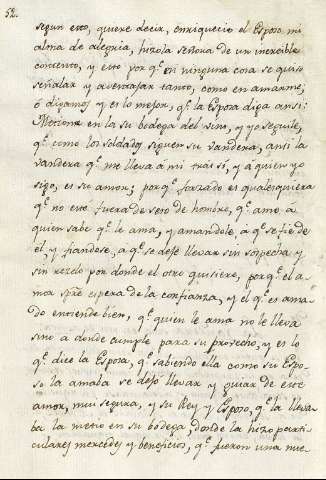 52.
segun esto, quiere decir, enriquecio el Esposo mi
alma de alegria, hizola señora de un increible
contento, y esto por q.e en ninguna cosa se quiso
señalar y aventajar tanto, como en amarme;
ó digamos y es lo mejor, q.e la Esposa diga ansi:
Metiome en la su bodega del vino, y yo seguile,
q.e como los soldados siguen su vandera, ansi la
vandera q.e me lleva a mi tras sí, y a quien yo
sigo, es su amor; por q.e forzado es qualesquiera
q.e no este fuera de seso de hombre, q.e ame á
quien sabe q.e le ama, y amandole, a q.e se fie de
el, y fiandose, a q.e se deje llevar sin sospecha y
sin rezelo por donde el otro quisiere, por q.e el a-
mor spre espera de la confianza, y el q.e es ama-
do entiende bien, q.e quien le ama no le lleva
sino a donde cumple para su provecho, y es lo
q.e dice la Esposa, q.e sabiendo ella como su Espo-
so la amaba se dejo llevar y guiar de este
amor, mui segura, y su Rey y Esposo, q.e la lleva-
ba la metio en su bodega, donde la hizo parti-
culares mercedes y beneficios, q.e fueron una nue-